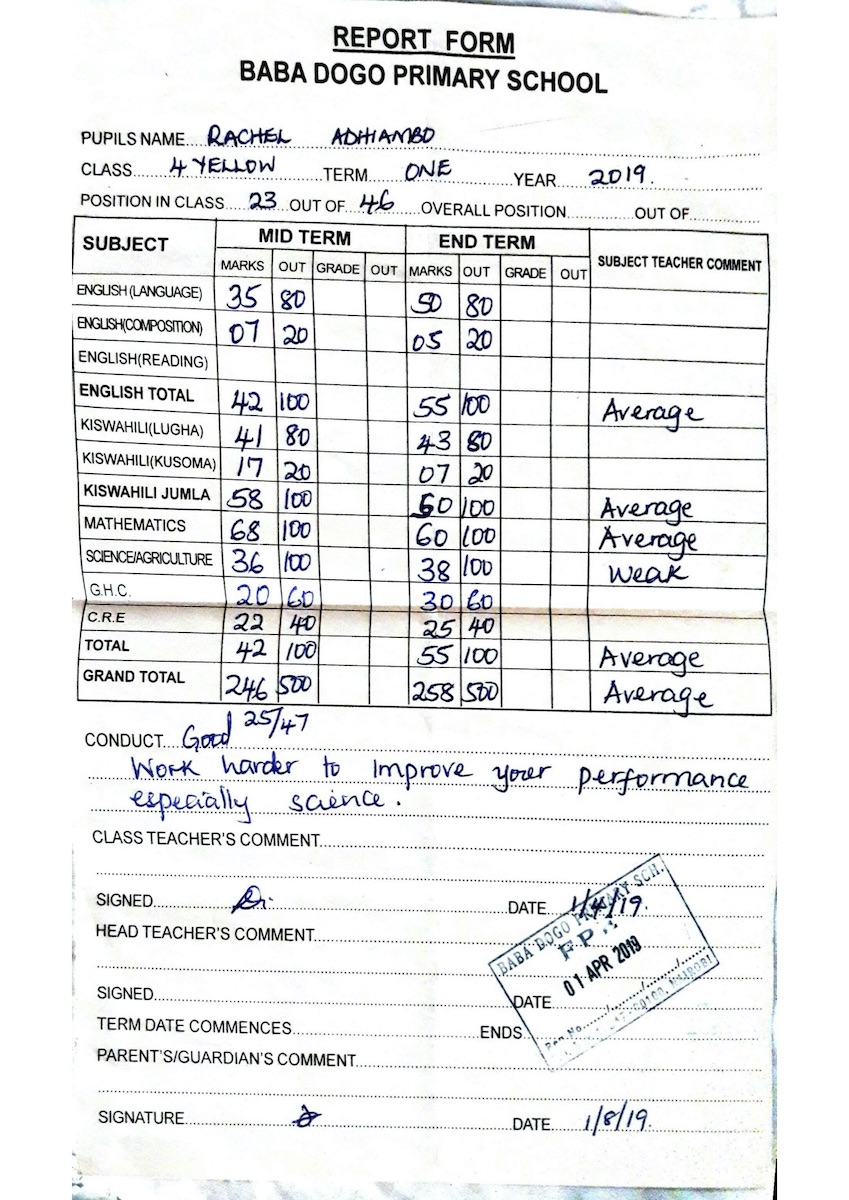 REPORT FORM
BABA DOGO PRIMARY SCHOOL
PUPILS NAME...RACHEL ADHIAMBO
CLASS.....4 YELLOW.....TERM.....ONE.....YEAR.....2019.
POSITION IN CLASS...23...OUT OF...46...OVERALL POSITION.............OUT OF.............
SUBJECT MID TERM END TERM SUBJECT TEACHER COMMENT
MARKS OUT GRADE OUT MARKS OUT GRADE OUT
ENGLISH (LANGUAGE) 35 80 50 80
ENGLISH(COMPOSITION) 07 20 05 20
ENGLISH(READING)
ENGLISH TOTAL 42 100 55 100 Average
KISWAHILI(LUGHA) 41 80 43 80
KISWAHILI(KUSOMA) 17 20 07 20
KISWAHILI JUMLA 58 100 50 100 Average
MATHEMATICS 68 100 60 100 Average
SCIENCE/AGRICULTURE 36 100 38 100 Weak
G.H.C. 20 60 30 60
C.R.E 22 40 25 40
TOTAL 42 100 55 100 Average
GRAND TOTAL 246 500 258 500 Average
CONDUCT....Good 25/47
Work harder to improve your performance
especially science.
CLASS TEACHER'S COMMENT
SIGNED DATE 1/4/19.
HEAD TEACHER'S COMMENT
BABA DOGO PRIMARY SCH.
01 APR 2019
SIGNED DATE
NAIROBI
TERM DATE COMMENCES ENDS
PARENT'S/GUARDIAN'S COMMENT
SIGNATURE DATE 1/8/19.